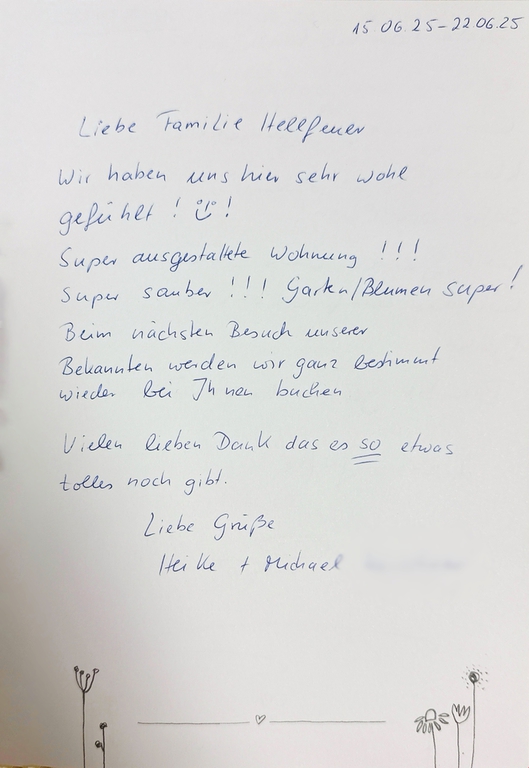 15.06.25-22.06.25
Liebe Familie Hellfeuer
Wir haben uns hier sehr wohl
gefühlt ! !
Super ausgestaltete Wohnung !!!
Super sauber !!! Garten/Blumen super!
Beim nächsten Besuch unserer
Bekannten werden wir ganz bestimmt
wieder bei Ihnen buchen
Vielen lieben Dank das es so etwas
tolles noch gibt.
Liebe Grüße
Heike + Michael